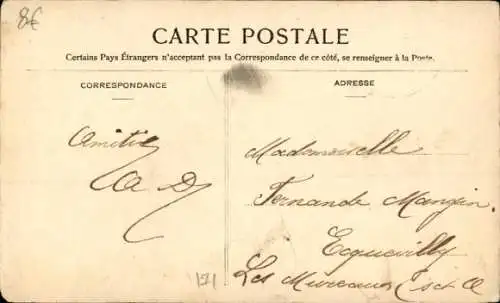 8€
CARTE POSTALE
Certains Pays Étrangers n'acceptant pas la Correspondance de ce côté, se renseigner à la Poste.
CORRESPONDANCE
ADRESSE
Amitié
Mademoiselle
Fernande Mangin.
Ecquevilly
Les Mureaux S. et O